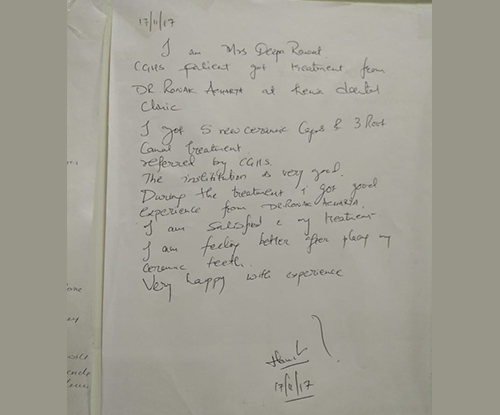 17/11/17
I am Mrs Deepa Rawat
CGHS patient got treatment from
DR RONAK ACHARYA at dental
Clinic
I got 5 new ceramic Caps & 3 Root
Canal treatment
referred by CGHS.
The institution is very good.
During the treatment I got good
experience from DR. RONAK ACHARYA.
I am satisfied c my treatment
I am feeling better after placing my
Ceramic teeth.
Very happy with experience
17/11/17